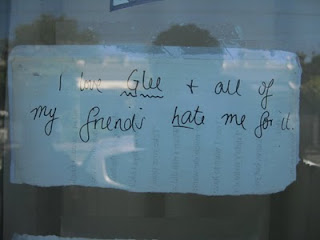 I love Glee + all of
my friends hate me for it.